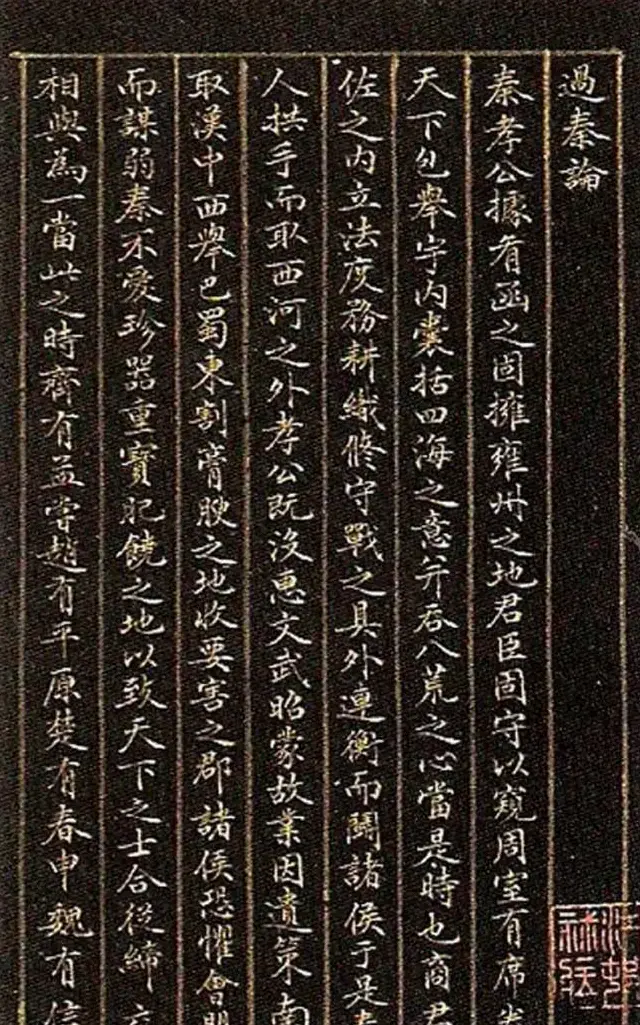 過秦論
秦孝公據有函之固擁雍州之地君臣固守以窺周室有席
天下包舉宇内囊括四海之意并吞八荒之心當是時也商君
佐之内立法度務耕織修守戰之具外連衡而鬭諸侯于是
人拱手而取西河之外孝公既沒惠文武昭蒙故業因遺策南
取漢中西舉巴蜀東割膏腴之地收要害之郡諸侯恐懼會盟
而謀弱秦不愛珍器重寶肥饒之地以致天下之士合從締
相與為一當此之時齊有孟嘗趙有平原楚有春申魏有信